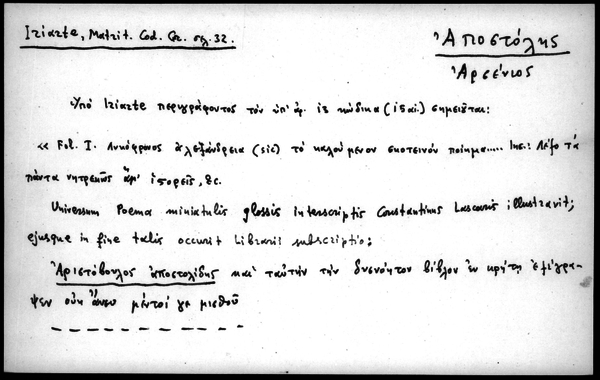 Iriarte, Matrit. Cod. Gr. σελ. 32.
Ἀποστόλης
Ἀρσένιος
Ὑπὸ Iriarte περιγράφοντος τὸν ὑπ' ἀρ. ιζ κώδικα (15 αἰ.) σημειοῦται:
«Fol. I. Λυκόφρονος ἀλεξάνδρεια (sic) τὸ καλούμενον σκοτεινὸν ποίημα..... Inc.: Λέξω τὰ
πάντα νητρεκῶς ἅμ' ἱστορεῖς, &c.
Universum Poema miniatulis glossis interscriptis Constantinus Lascaris illustravit;
ejusque in fine talis occurit Librarii subscriptio:
Ἀριστόβουλος ἀποστολίδης καὶ ταύτην τὴν δυσνόητον βίβλον ἐν κρήτῃ ἐξέγρα-
ψεν οὐκ ἄνευ μέντοι γε μισθοῦ